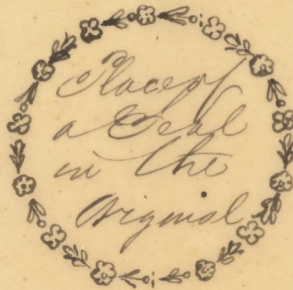 Place of
a Seal
in the
Original